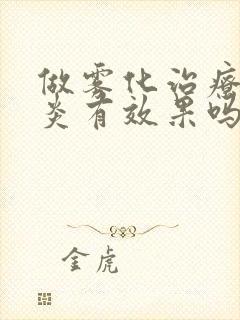 做雾化治疗
炎有效果吗
金虎